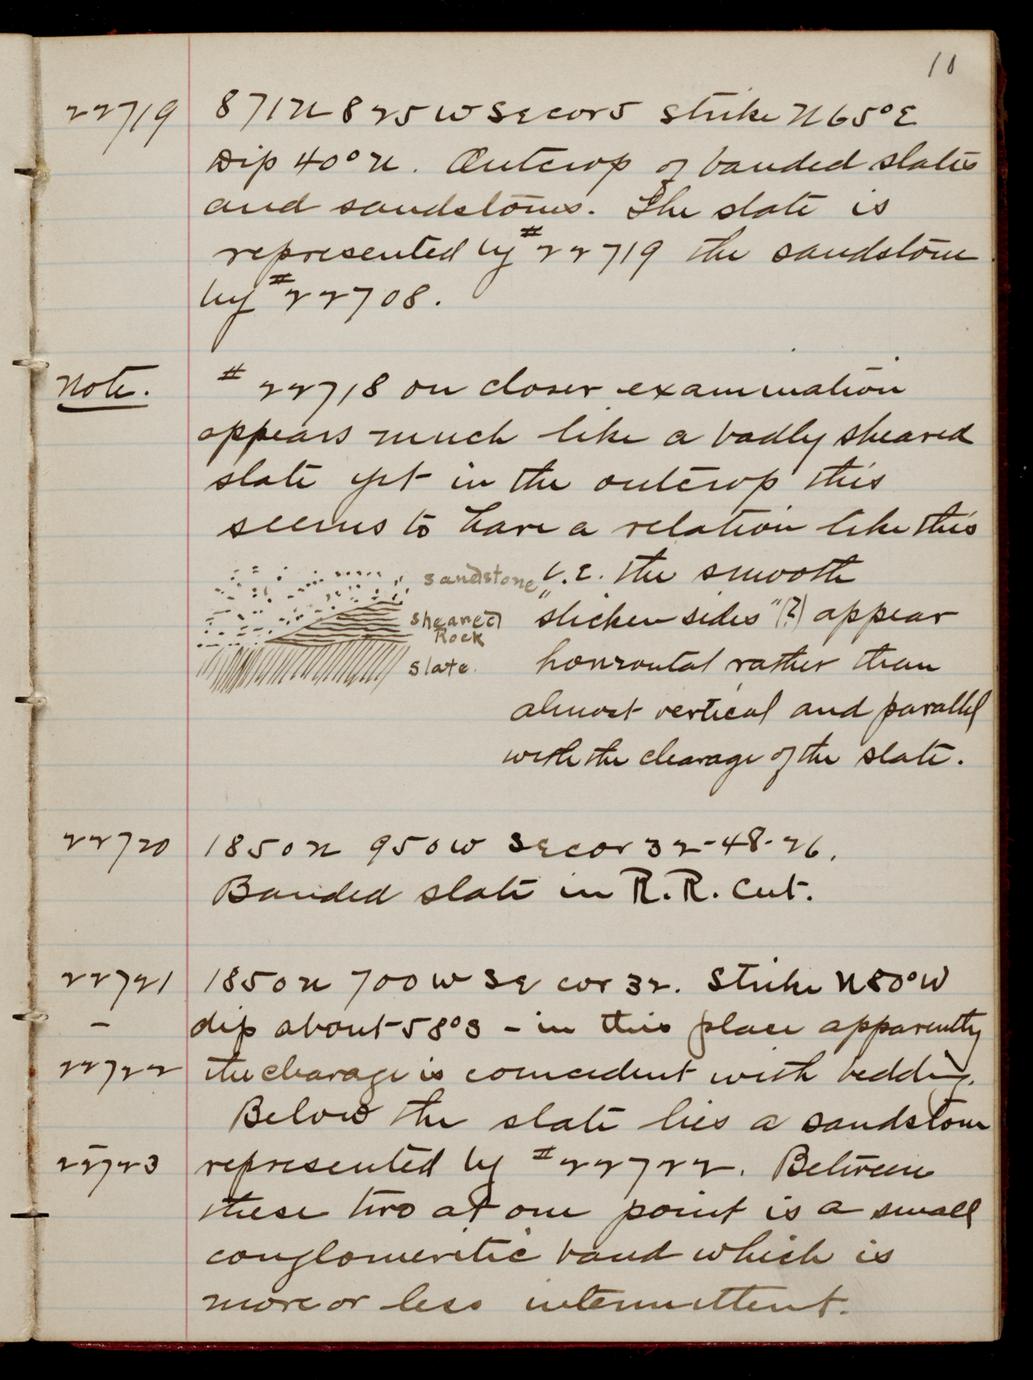 10
22719 871N 825W SE cor 5 Strike N65°E
Dip 40°N. Outcrop of banded slates
and sandstones. The slate is
represented by #22719 the sandstone
by #22708.
Note. #22718 on closer examination
appears much like a badly sheared
slate yet in the outcrop this
seems to have a relation like this
sandstone i.e. the smooth
sheared Rock "slickensides"(?) appear
slate. horizontal rather than
almost vertical and parallel
with the cleavage of the slate.
22720 1850N 950W SE cor 32-48-26.
Banded slate in R.R. Cut.
22721 1850N 700W SE cor 32. Strike N80°W
– dip about 58°S – in this place apparently
22722 the cleavage is coincident with bedding.
Below the slate lies a sandstone
22723 represented by #22722. Between
these two at one point is a small
conglomeritic band which is
more or less intermittent.